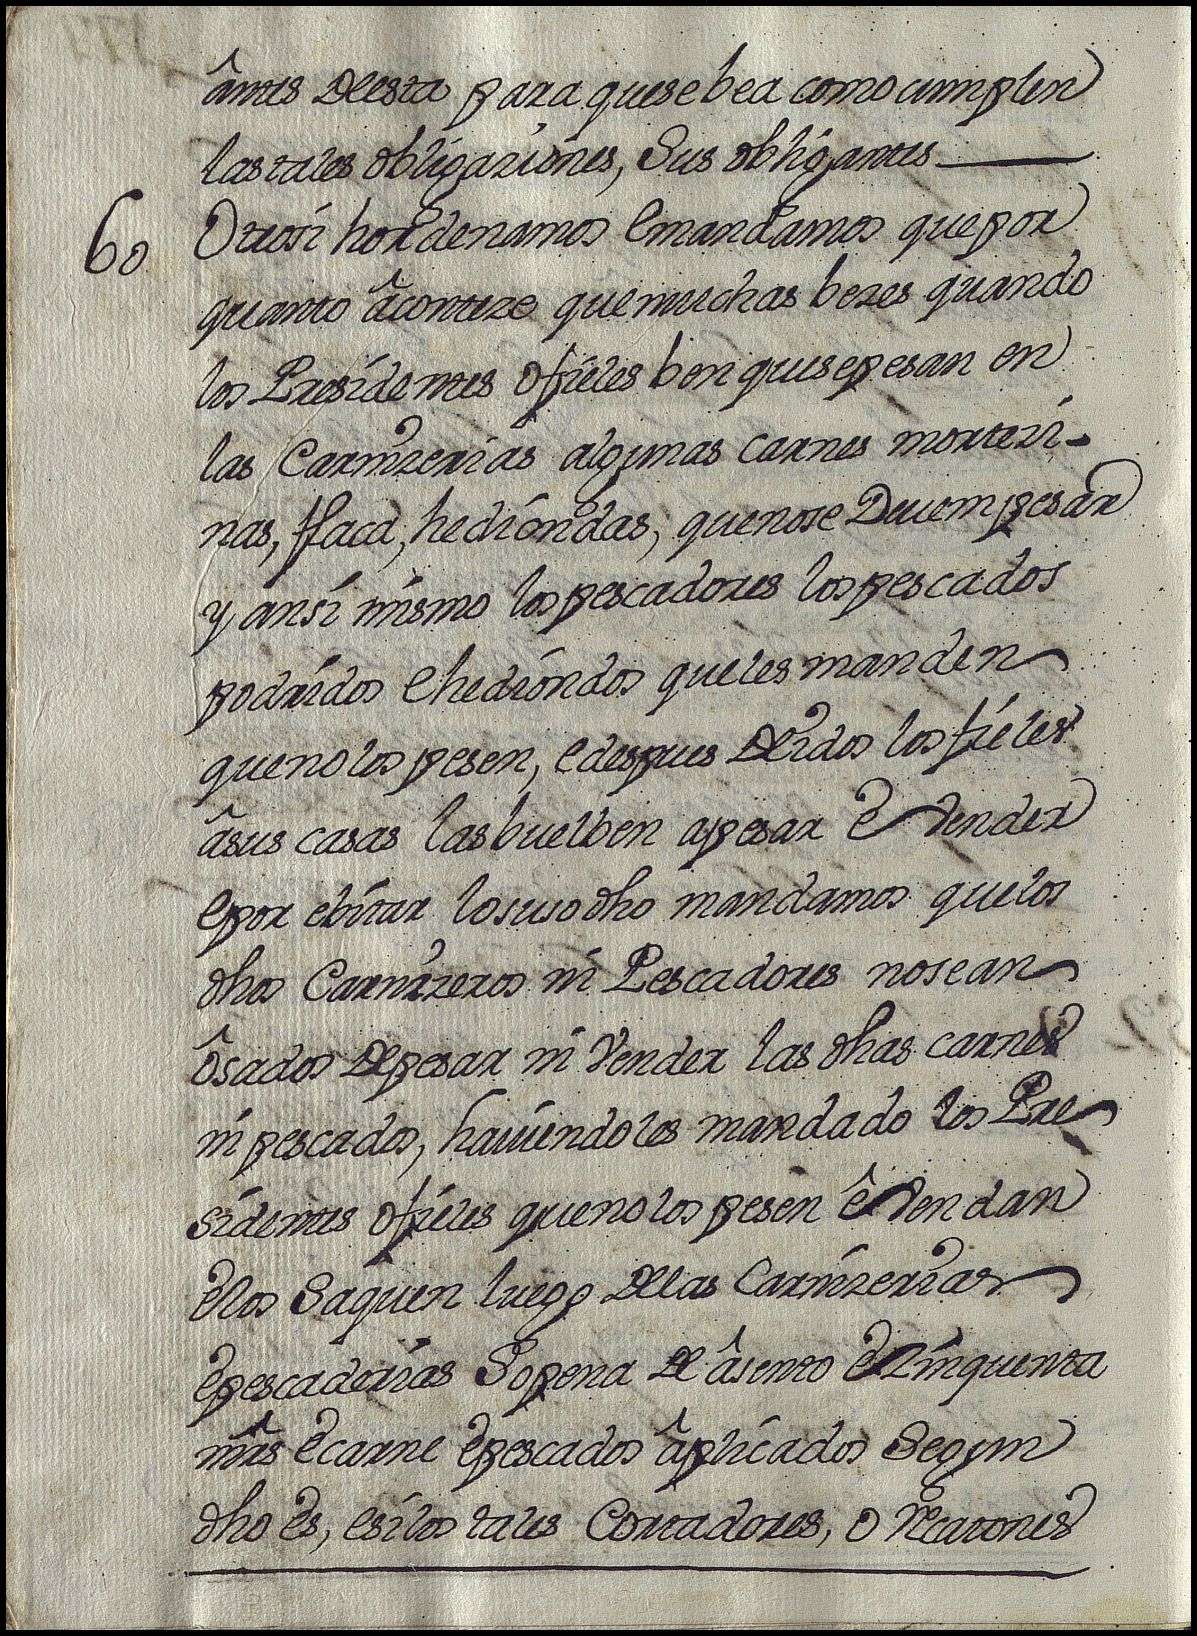 ântes deesta para que se bea como cumplen
las tales obligaziones, Sus obligantes
60 Otrosi hordenamos e mandamos que por
quanto âconteze que muchas bezes quando
los Presidentes o fieles ben que se pesan en
las Carnizerias algunas carnes mortezi-
nas, flaca, hediondas, que no se deuen pesar
y ansi mismo los pescadores los pescados
podridos e hediondos que les manden
que no los pesen, e despues de idos los fieles
âsus casas las buelben apesar e Vender
e por ebitar lo suso dho mandamos que los
dhos Carnizeros ni Pescadores no sean
ôsados de pesar ni Vender las dhas carnes
ni pescados, hauiendoles mandado los Pre
sidentes o fieles que no los pesen ê Vendan
e los Saquen luego de las Carnizerias
e pescaderias So pena de âsento e Zinquenta
mrs e carne e pescados âplicados Segun
dho es, e si los tales Cortadores, o Recatones